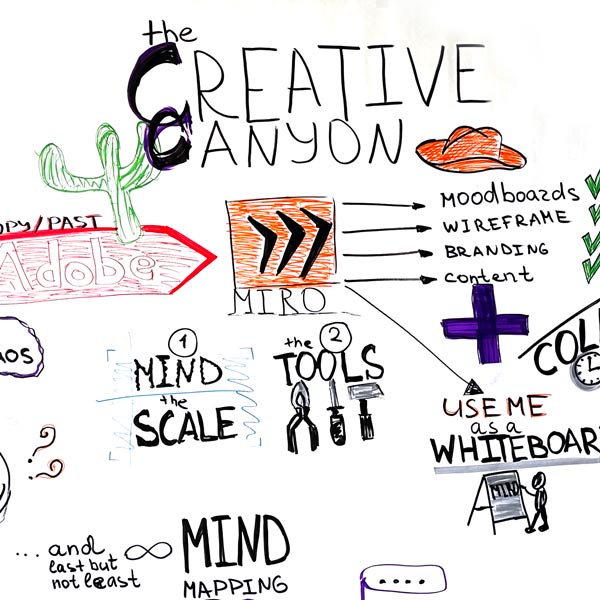 the
CREATIVE
CANYON
Moodboards
WIREFRAME
BRANDING
content
OPY/PAST
Adobe
MIRO
COLL
1
MIND
the
SCALE
the
2
TOOLS
USE ME
as a
WHITEBOAR
MIND
... and
last but
not least
MIND
MAPPING
....